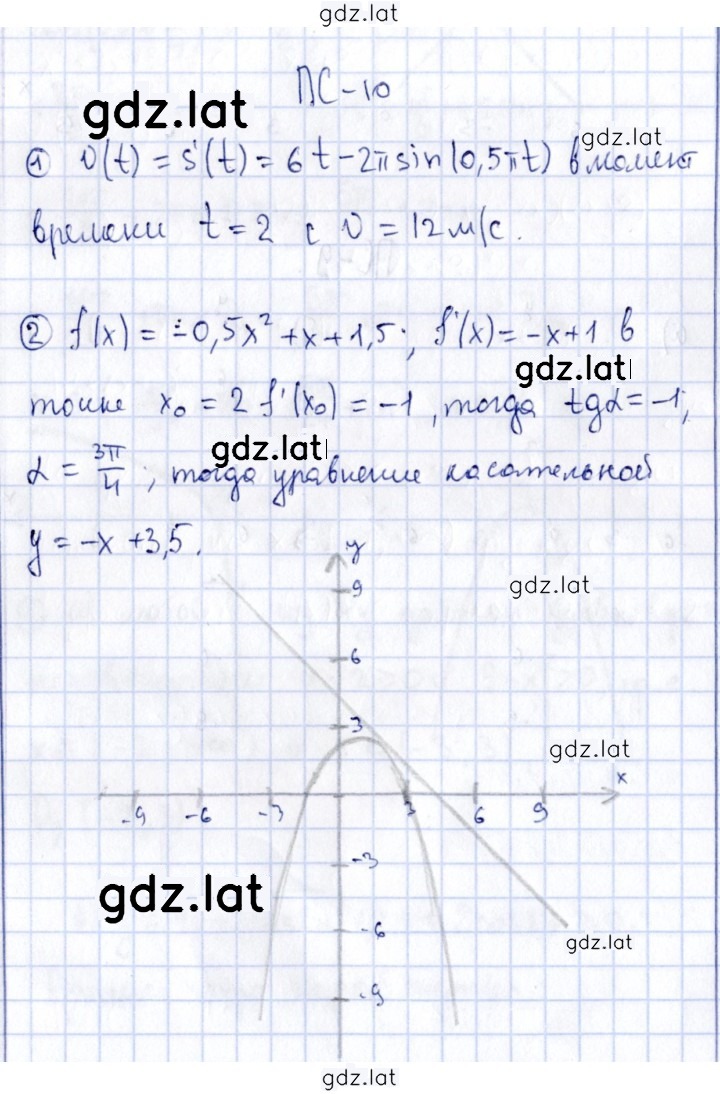 gdz.lat
ПС-10
gdz.lat
gdz.lat
① v(t) = s'(t) = 6t - 2π sin(0,5πt) в момент
времени t = 2 с v = 12 м/с.
② f(x) = -0,5x² + x + 1,5; f'(x) = -x + 1 в
gdz.lat
точке x₀ = 2 f'(x₀) = -1, тогда tgα = -1;
gdz.lat
α = 3π/4; тогда уравнение касательной
y = -x + 3,5.
y
gdz.lat
9
6
3
gdz.lat
x
-9 -6 -3 3 6 9
-3
gdz.lat
-6
gdz.lat
-9
gdz.lat